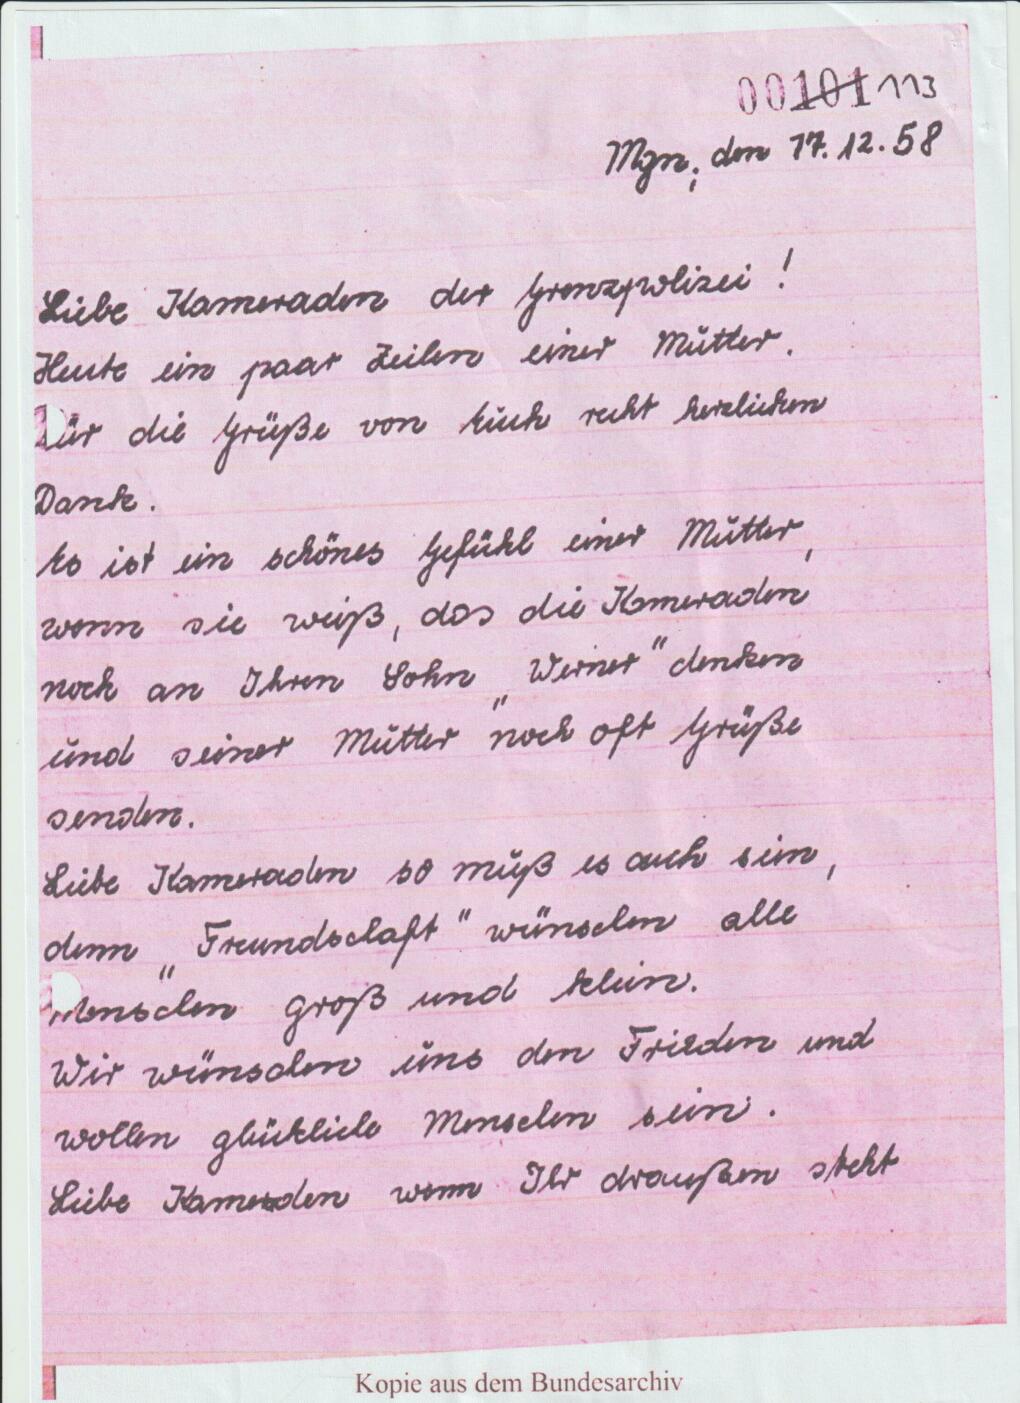 00101 113
Mgn, den 17.12.58
Liebe Kameraden der Grenzpolizei!
Heute ein paar Zeilen einer Mutter.
Für die Grüße von Euch recht herzlichen
Dank.
Es ist ein schönes Gefühl einer Mutter,
wenn sie weiß, das die Kameraden
noch an Ihren Sohn „Werner" denken
und seiner Mutter noch oft Grüße
senden.
Liebe Kameraden so muß es auch sein,
denn „Freundschaft" wünschen alle
Menschen groß und klein.
Wir wünschen uns den Frieden und
wollen glückliche Menschen sein.
Liebe Kameraden wenn Ihr draußen steht
Kopie aus dem Bundesarchiv